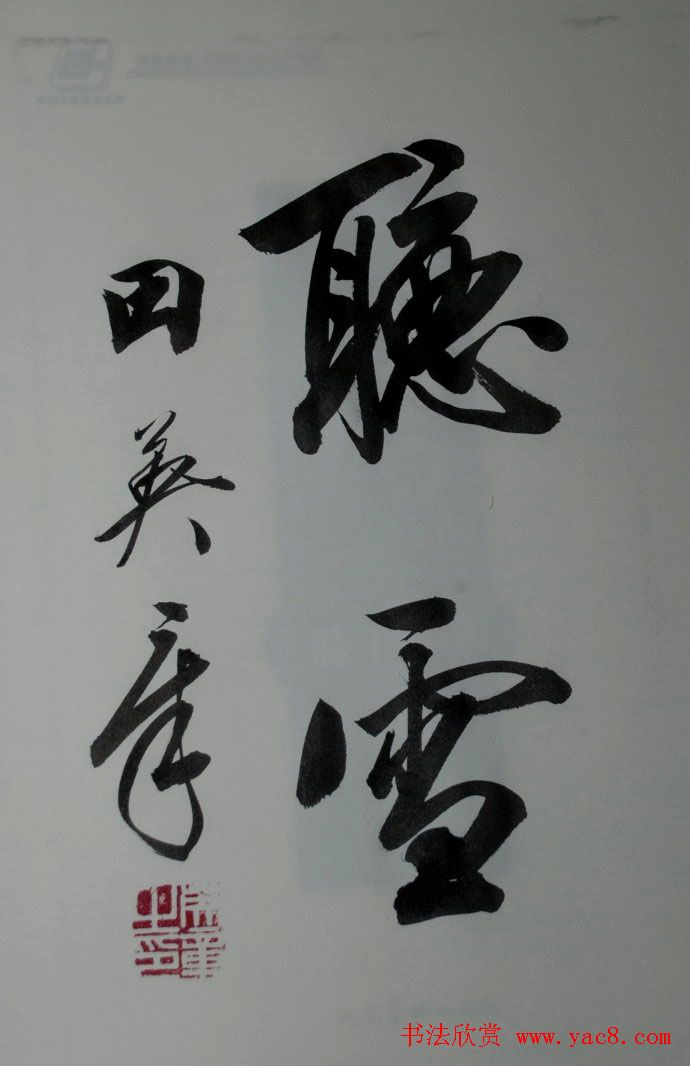 聽雪
田英章
书法欣赏 www.yac8.com